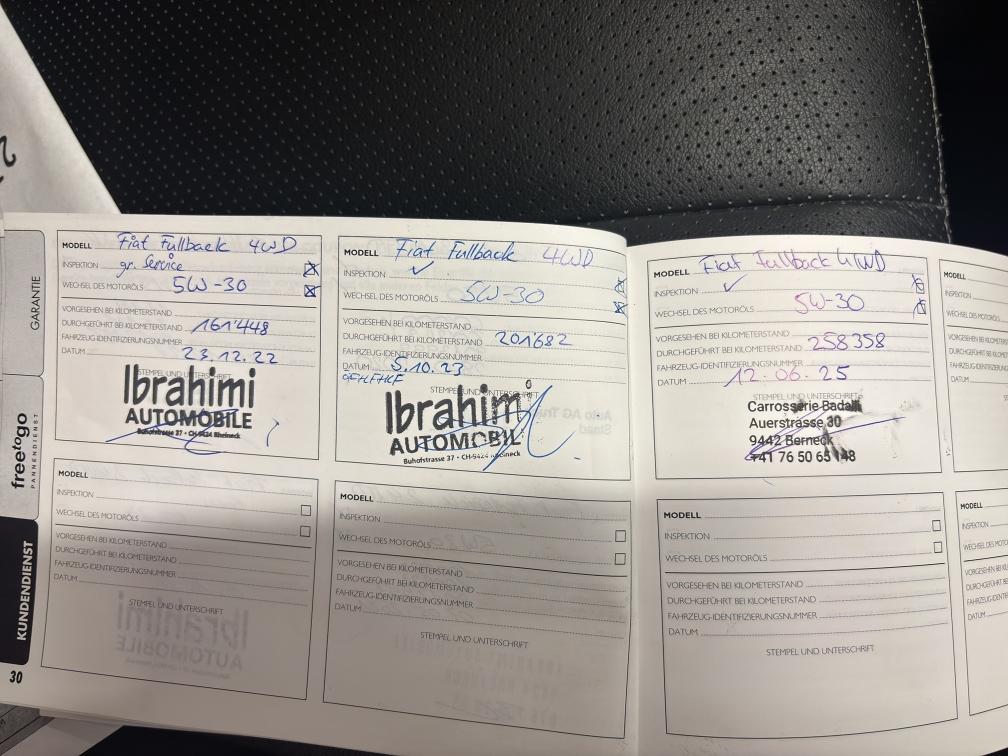 GARANTIE
freetogo
PANNENDIENST
KUNDENDIENST
30
MODELL Fiat Fullback 4WD
INSPEKTION gr. Service
WECHSEL DES MOTORÖLS 5W-30
VORGESEHEN BEI KILOMETERSTAND
DURCHGEFÜHRT BEI KILOMETERSTAND 161'448
FAHRZEUG-IDENTIFIZIERUNGSNUMMER
DATUM 23.12.22
STEMPEL UND UNTERSCHRIFT
Ibrahimi
AUTOMOBILE
Buhofstrasse 37 • CH-9424 Rheineck
MODELL Fiat Fullback 4WD
INSPEKTION ✓
WECHSEL DES MOTORÖLS 5W-30
VORGESEHEN BEI KILOMETERSTAND
DURCHGEFÜHRT BEI KILOMETERSTAND 201'682
FAHRZEUG-IDENTIFIZIERUNGSNUMMER
DATUM 5.10.23
STEMPEL UND UNTERSCHRIFT
Ibrahimi
AUTOMOBIL
Buhofstrasse 37 • CH-9424 Rheineck
MODELL Fiat Fullback 4WD
INSPEKTION ✓
WECHSEL DES MOTORÖLS 5W-30
VORGESEHEN BEI KILOMETERSTAND
DURCHGEFÜHRT BEI KILOMETERSTAND 258358
FAHRZEUG-IDENTIFIZIERUNGSNUMMER
DATUM 12.06.25
STEMPEL UND UNTERSCHRIFT
Carrosserie Badalli
Auerstrasse 30
9442 Berneck
+41 76 50 65 148
MODELL
MODELL
INSPEKTION
WECHSEL DES MOTORÖLS
VORGESEHEN BEI KILOMETERSTAND
DURCHGEFÜHRT BEI KILOMETERSTAND
FAHRZEUG-IDENTIFIZIERUNGSNUMMER
DATUM
STEMPEL UND UNTERSCHRIFT
MODELL
INSPEKTION
WECHSEL DES MOTORÖLS
VORGESEHEN BEI KILOMETERSTAND
DURCHGEFÜHRT BEI KILOMETERSTAND
FAHRZEUG-IDENTIFIZIERUNGSNUMMER
DATUM
STEMPEL UND UNTERSCHRIFT
MODELL
INSPEKTION
WECHSEL DES MOTORÖLS
VORGESEHEN BEI KILOMETERSTAND
DURCHGEFÜHRT BEI KILOMETERSTAND
FAHRZEUG-IDENTIFIZIERUNGSNUMMER
DATUM
STEMPEL UND UNTERSCHRIFT
MODELL